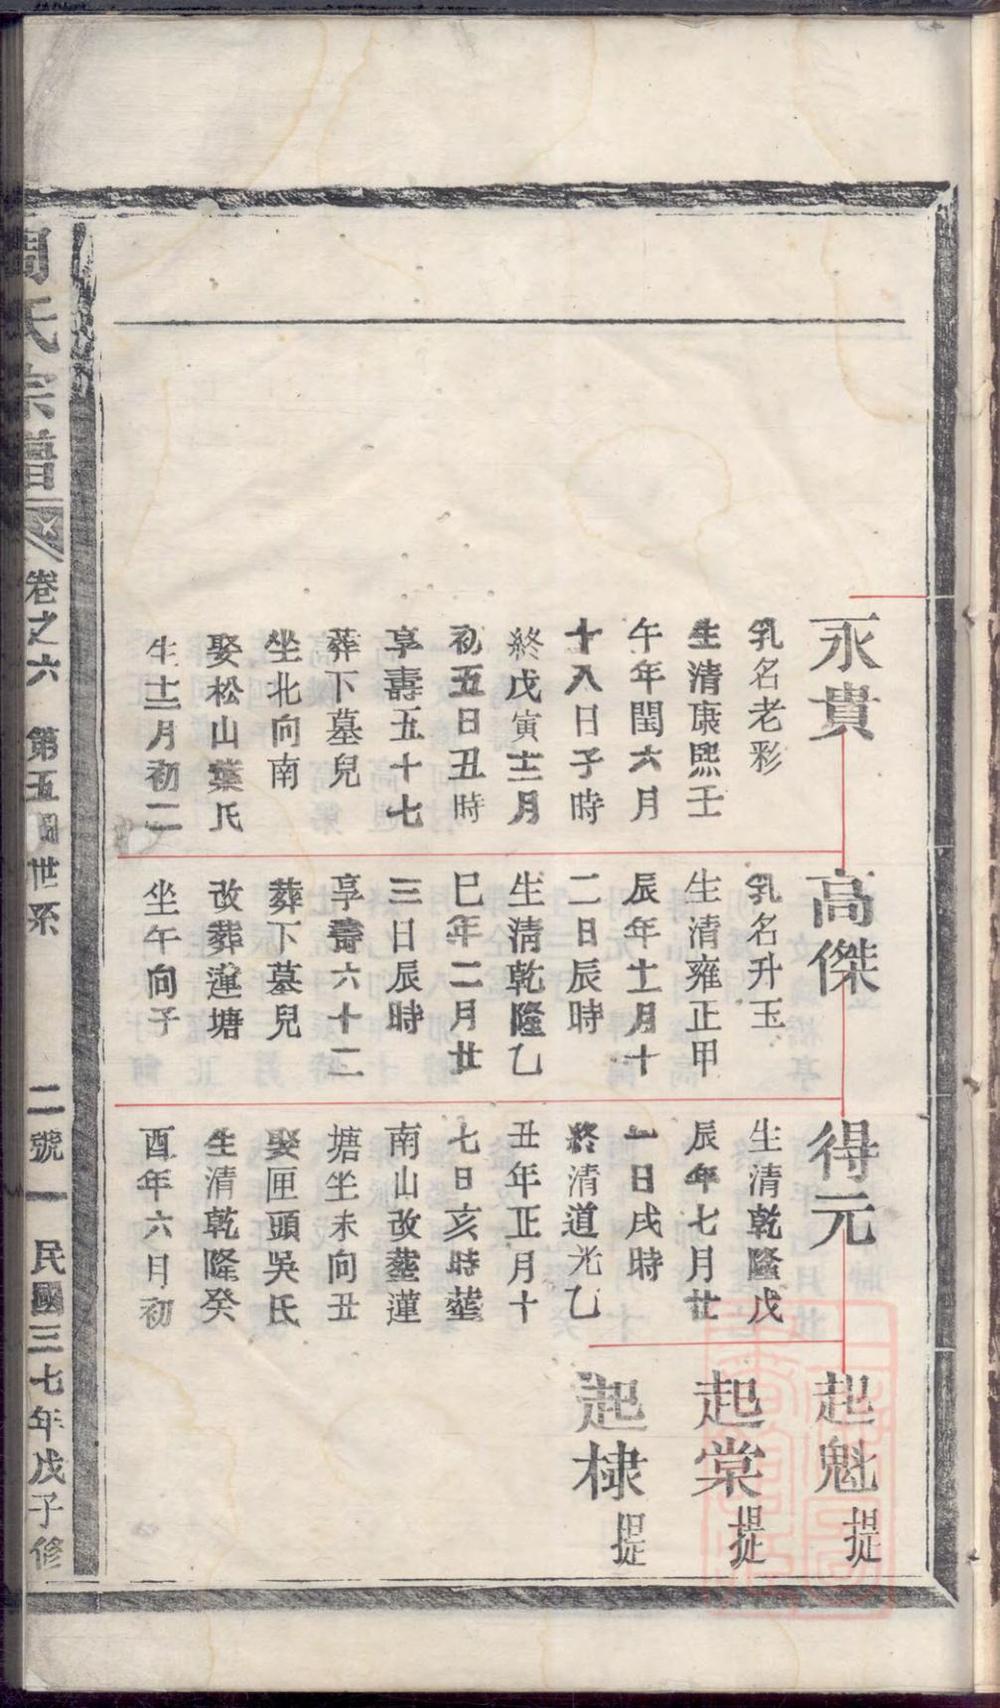 永貴
乳名老彩
生清康熙壬
午年閏六月
十八日子時
終戊寅十二月
初五日丑時
享壽五十七
葬下墓兒
坐北向南
娶松山葉氏
生十二月初二
高傑
乳名升玉
生清雍正甲
辰年十一月十
二日辰時
生清乾隆乙
巳年二月廿
三日辰時
享壽六十二
葬下墓兒
改葬蓮塘
坐午向子
得元
生清乾隆戊
辰年七月廿
一日戌時
終清道光乙
丑年正月十
七日亥時塟
南山改塟蓮
塘坐未向丑
娶匣頭吳氏
生清乾隆癸
酉年六月初
起魁 提
起棠 提
起棣 提
周氏宗譜 卷之六 第五 世系 二號 一 民國三七年戊子修